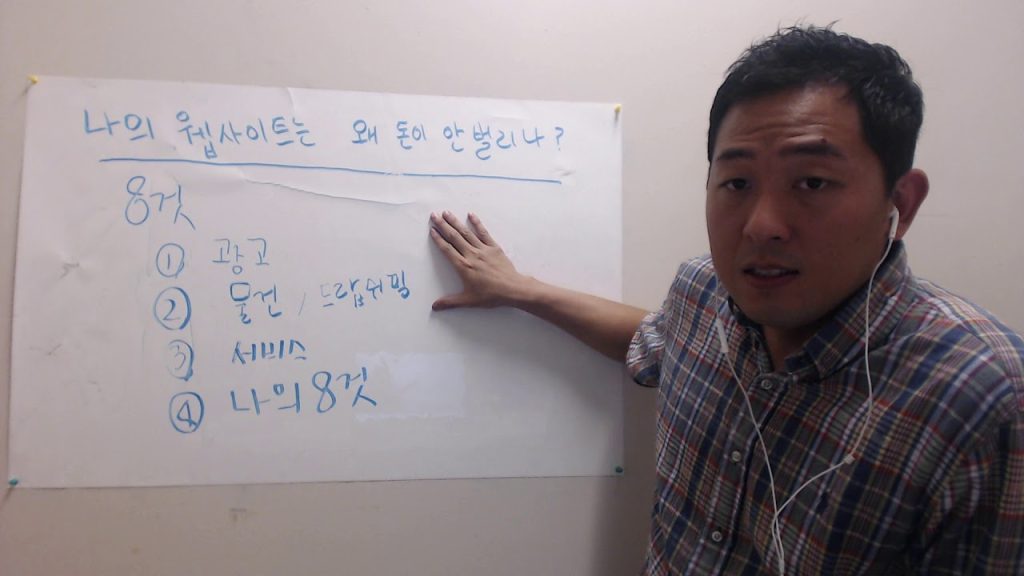 나의 웹사이트는 왜 돈이 안 벌리나?
8것
① 광고
② 물건 / 드랍쉬핑
③ 서비스
④ 나의 8것